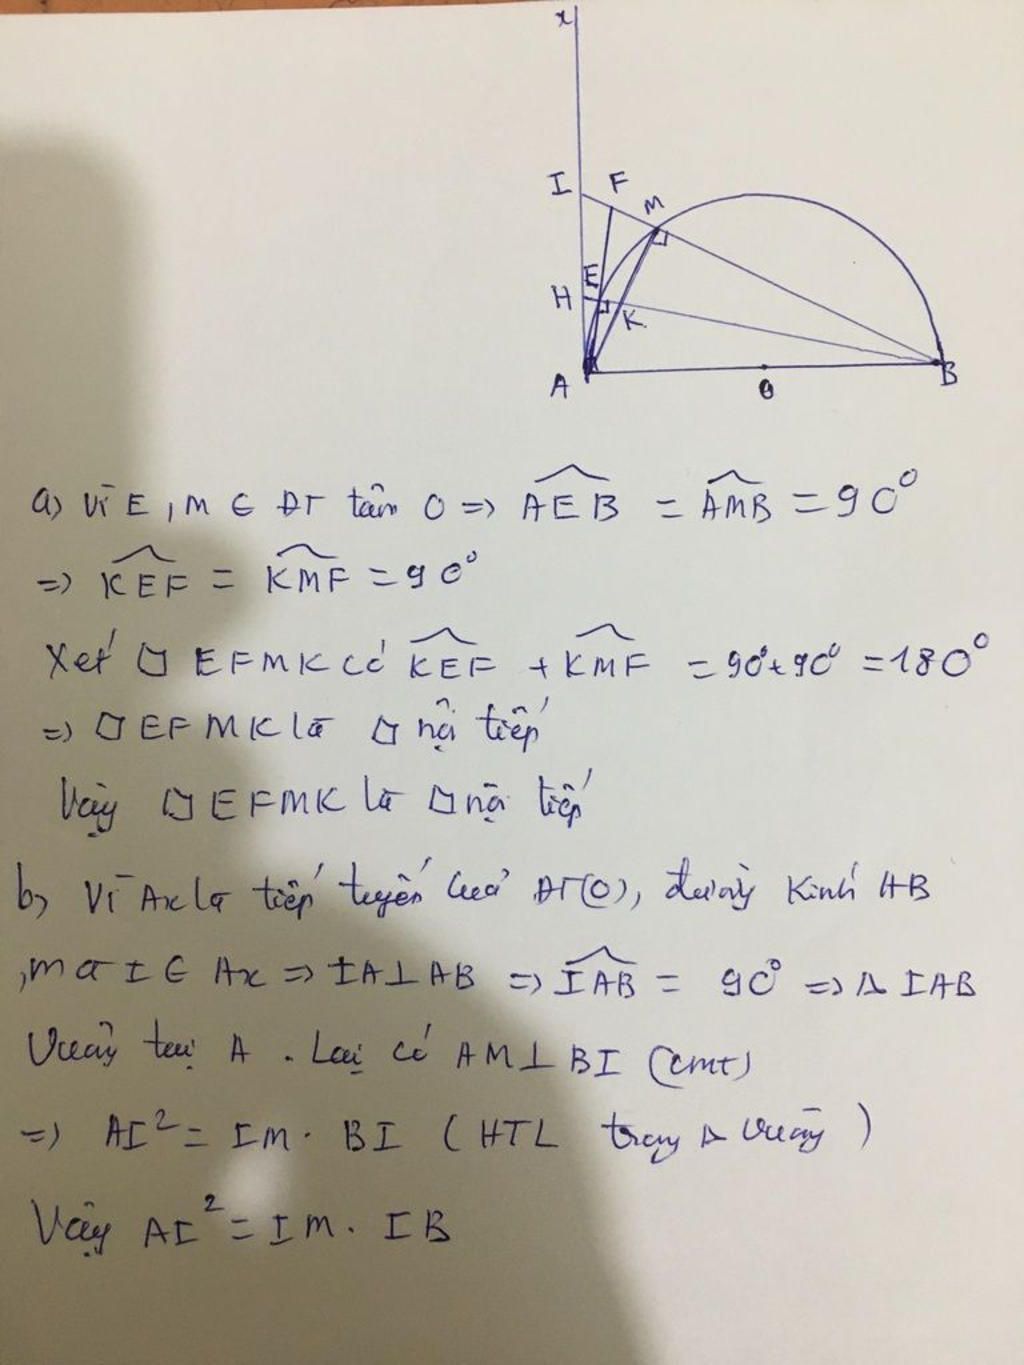 x
I F M
E
H K
A O B
a) Vì E, M ∈ ĐT tâm O => AEB = AMB = 90⁰
=> KEF = KMF = 90⁰
Xét □ EFMK có KEF + KMF = 90⁰ + 90⁰ = 180⁰
=> □ EFMK là □ nội tiếp
Vậy □ EFMK là □ nội tiếp
b) Vì Ax là tiếp tuyến của ĐT(O), đường kính AB
, mà I ∈ Ax => IA ⊥ AB => IAB = 90⁰ => Δ IAB
Vuông tại A . Lại có AM ⊥ BI (cmt)
=> AI² = IM . BI ( HTL trong Δ Vuông )
Vậy AI² = IM . IB